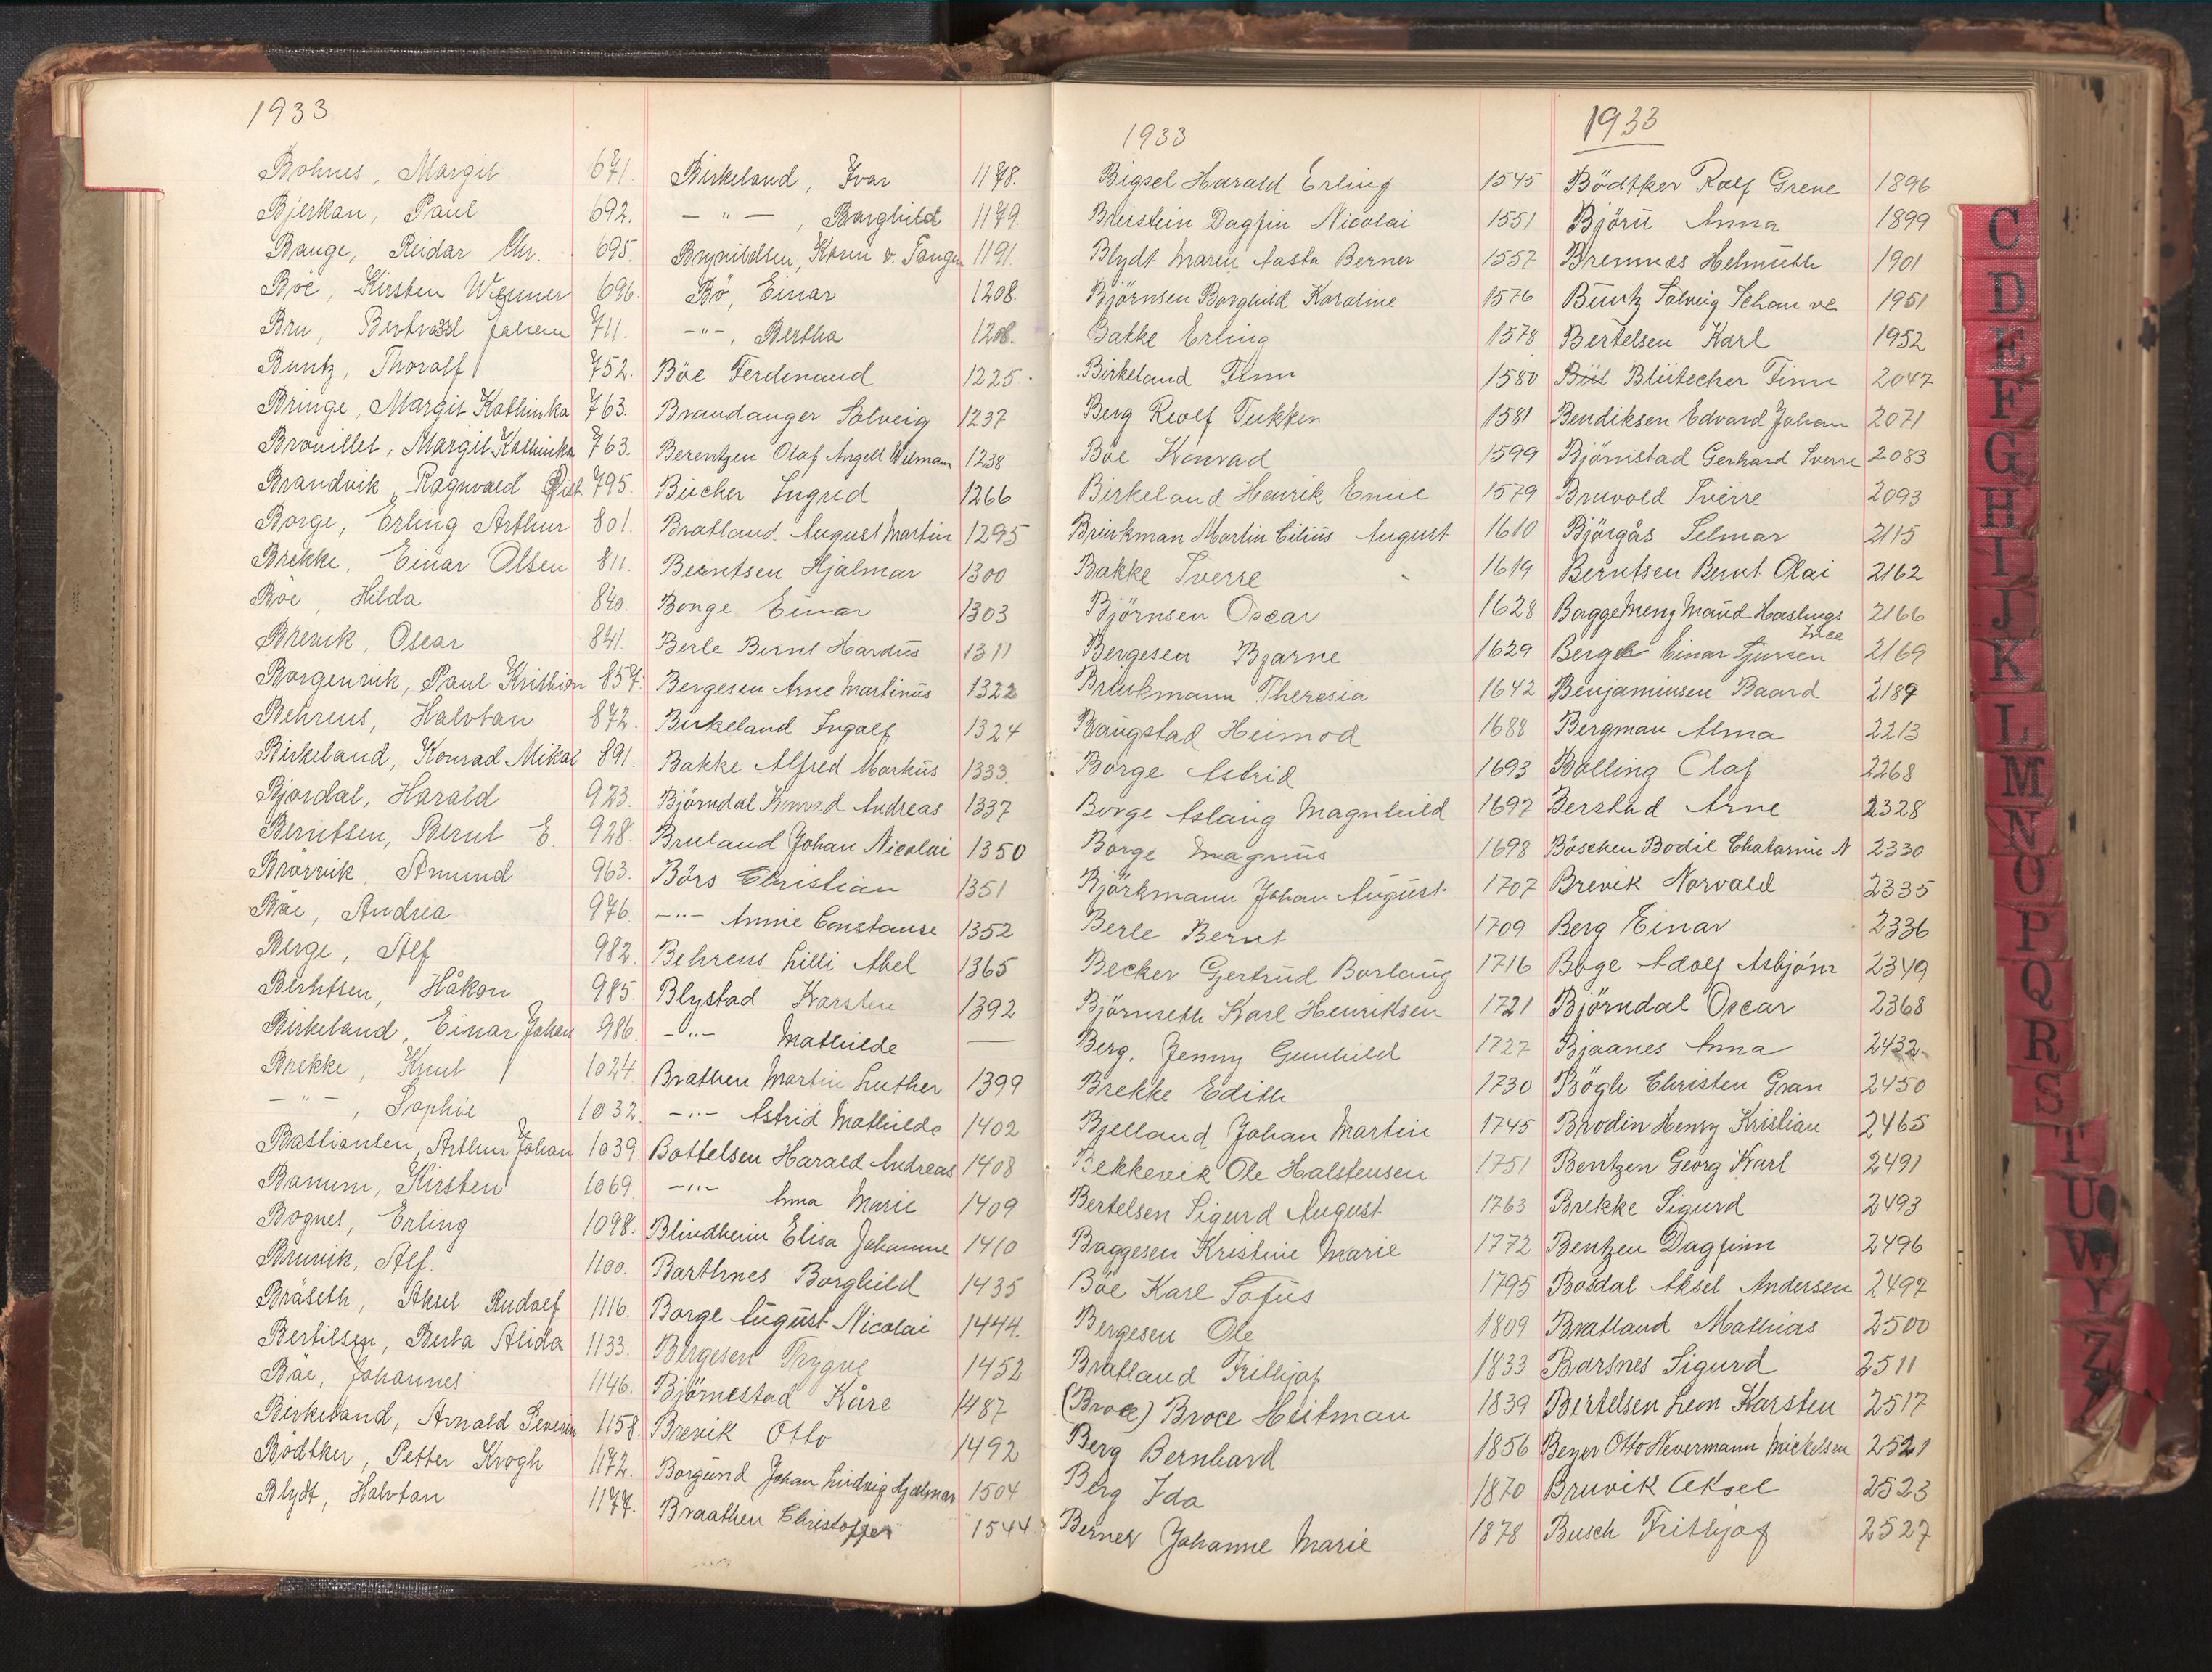 1933
Bohnes, Margit 671.
Bjerkan, Paul 692.
Bauge, Reidar Chr. 695.
Böe, Kirsten Wenner 696.
Bru, Johan 711.
Buntz, Thoralf 752.
Bringe, Margit Kathinka 763.
Brouillet, Margit Kathinka 763.
Brandvik, Ragnvald 795.
Borge, Erling Arthur 801.
Brekke, Einar Olsen 811.
Böe, Hilda 840.
Brevik, Oscar 841.
Borgenvik, Paul Kristian 857.
Behrens, Halvtan 872.
Birkeland, Konrad Mikal 891.
Bjordal, Harald 923.
Berntsen, Bernt E. 928.
Brörvik, Amund 963.
Böe, Andrea 976.
Berge, Alf 982.
Berntsen, Håkon 985.
Birkeland, Einar Johan 986.
Brekke, Knut 1024.
— " —, Sophie 1032
Bastiansen, Arthur Johan 1039
Banum, Kirsten 1069.
Bognes, Erling 1098.
Bruvik, Alf. 1100.
Bräseth, Aksel Rudolf 1116.
Bertilsen, Berta Alida 1133.
Böe, Johannes 1146.
Birkeland, Arnold Severin 1158.
Bödtker, Petter Krogh 1172.
Blydt, Halvtan 1177.
Birkeland, Ivar 1178.
— " —, Borghild 1179.
Brynildsen, Karen v. Tangen 1191.
Bö, Einar 1208.
— " —, Bertha 1208.
Böe Ferdinand 1225.
Brandanger Solveig 1237
Berentzen Olaf Angell Wilmann 1238
Bücher Ingrid 1266
Bratland August Martin 1295
Berntsen Hjalmar 1300
Borge Einar 1303
Berle Bernt Hardus 1311
Bergesen Arne Martinus 1322
Birkeland Ingolf 1324
Bakke Alfred Markus 1333.
Björndal Konrad Andreas 1337
Bruland Johan Nicolai 1350
Börs Christian 1351
— " — Annie Constanse 1352
Behrens Lilli Abel 1365
Blystad Karsten 1392
— " — Mathilde —
Brathen Martin Luther 1399
— " — Astrid Mathilde 1402
Bottelsen Harald Andreas 1408
— " — Anna Marie 1409
Blindheim Elisa Johanne 1410
Barthnes Borghild 1435
Borge August Nicolai 1444.
Bergesen Trygve 1452
Björnestad Kåre 1487
Brevik Otto 1492
Borgund Johan Ludvig Hjalmar 1504
Braathen Christoffer 1544
1933
Bigsel Harald Erling 1545
Breistein Dagfin Nicolai 1551
Blydt Maren Aasta Berner 1557
Björnsen Borghild Karoline 1576
Batke Erling 1578
Birkeland Finn 1580
Berg Reolf Tukken 1581
Böe Konrad 1599
Birkeland Henrik Emil 1579
Brinkman Martin Cilius August 1610
Bakke Sverre 1619
Björnsen Oscar 1628
Bergesen Bjarne 1629
Brinkmann Theresia 1642
Baugstad Heimod 1688
Borge Astrid 1693
Borge Aslaug Magnhild 1697
Borge Magnus 1698
Björkmann Johan August 1707
Berle Bernt 1709
Becker Gertrud Borlaug 1716
Björnseth Karl Henriksen 1721
Berg. Jenny Gunhild 1727
Brekke Edith 1730
Bjelland Johan Martin 1745
Bekkevik Ole Halstensen 1751
Bertelsen Sigurd August 1763
Baggesen Kristine Marie 1772
Böe Karl Sofus 1795
Bergesen Ole 1809
Bratland Frithjof 1833
(Broce) Broce Heitman 1839
Berg Bernhard 1856
Berg Ida 1870
Berner Johanne Marie 1878
1933
Bödtker Rolf Greve 1896
Björn Anna 1899
Bremnes Helmuth 1901
Buntz Solveig Schau ve 1951
Bertelsen Karl 1952
Büil Blütecher Finn 2047
Bendiksen Edvard Johan 2071
Björnstad Gerhard Sverre 2083
Bruvold Sverre 2093
Björgås Selmar 2115
Berntsen Bernt Olai 2162
Borgge Meng Maud Hastings 2166
Berge Einar Sjursen 2169
Benjaminsen Baard 2189
Bergman Alma 2213
Bolling Olaf 2268
Berstad Arne 2328
Böschen Bodil Chatarine N 2330
Brevik Norvald 2335
Berg Einar 2336
Boge Adolf Asbjörn 2349
Björndal Oscar 2368
Bjaanes Anna 2432
Bögh Christen Gran 2450
Brodin Henry Kristian 2465
Bentzen Georg Karl 2491
Brekke Sigurd 2493
Bentzen Dagfinn 2496
Bosdal Aksel Andersen 2497
Bratland Mathias 2500
Barsnes Sigurd 2511
Bertelsen Leon Karsten 2517
Beyer Otto Nevermann Mickelsen 2521
Bruvik Aksel 2523
Busch Frithjof 2527
C
D
E
F
G
H
I
J
K
L
M
N
O
P
Q
R
S
T
U
W
Y
Z